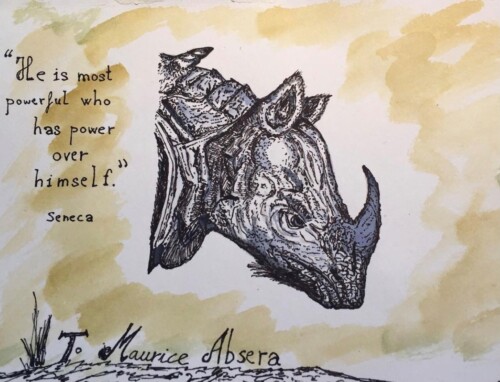 “He is most
powerful who
has power
over
himself.”
Seneca
To Maurice Absera